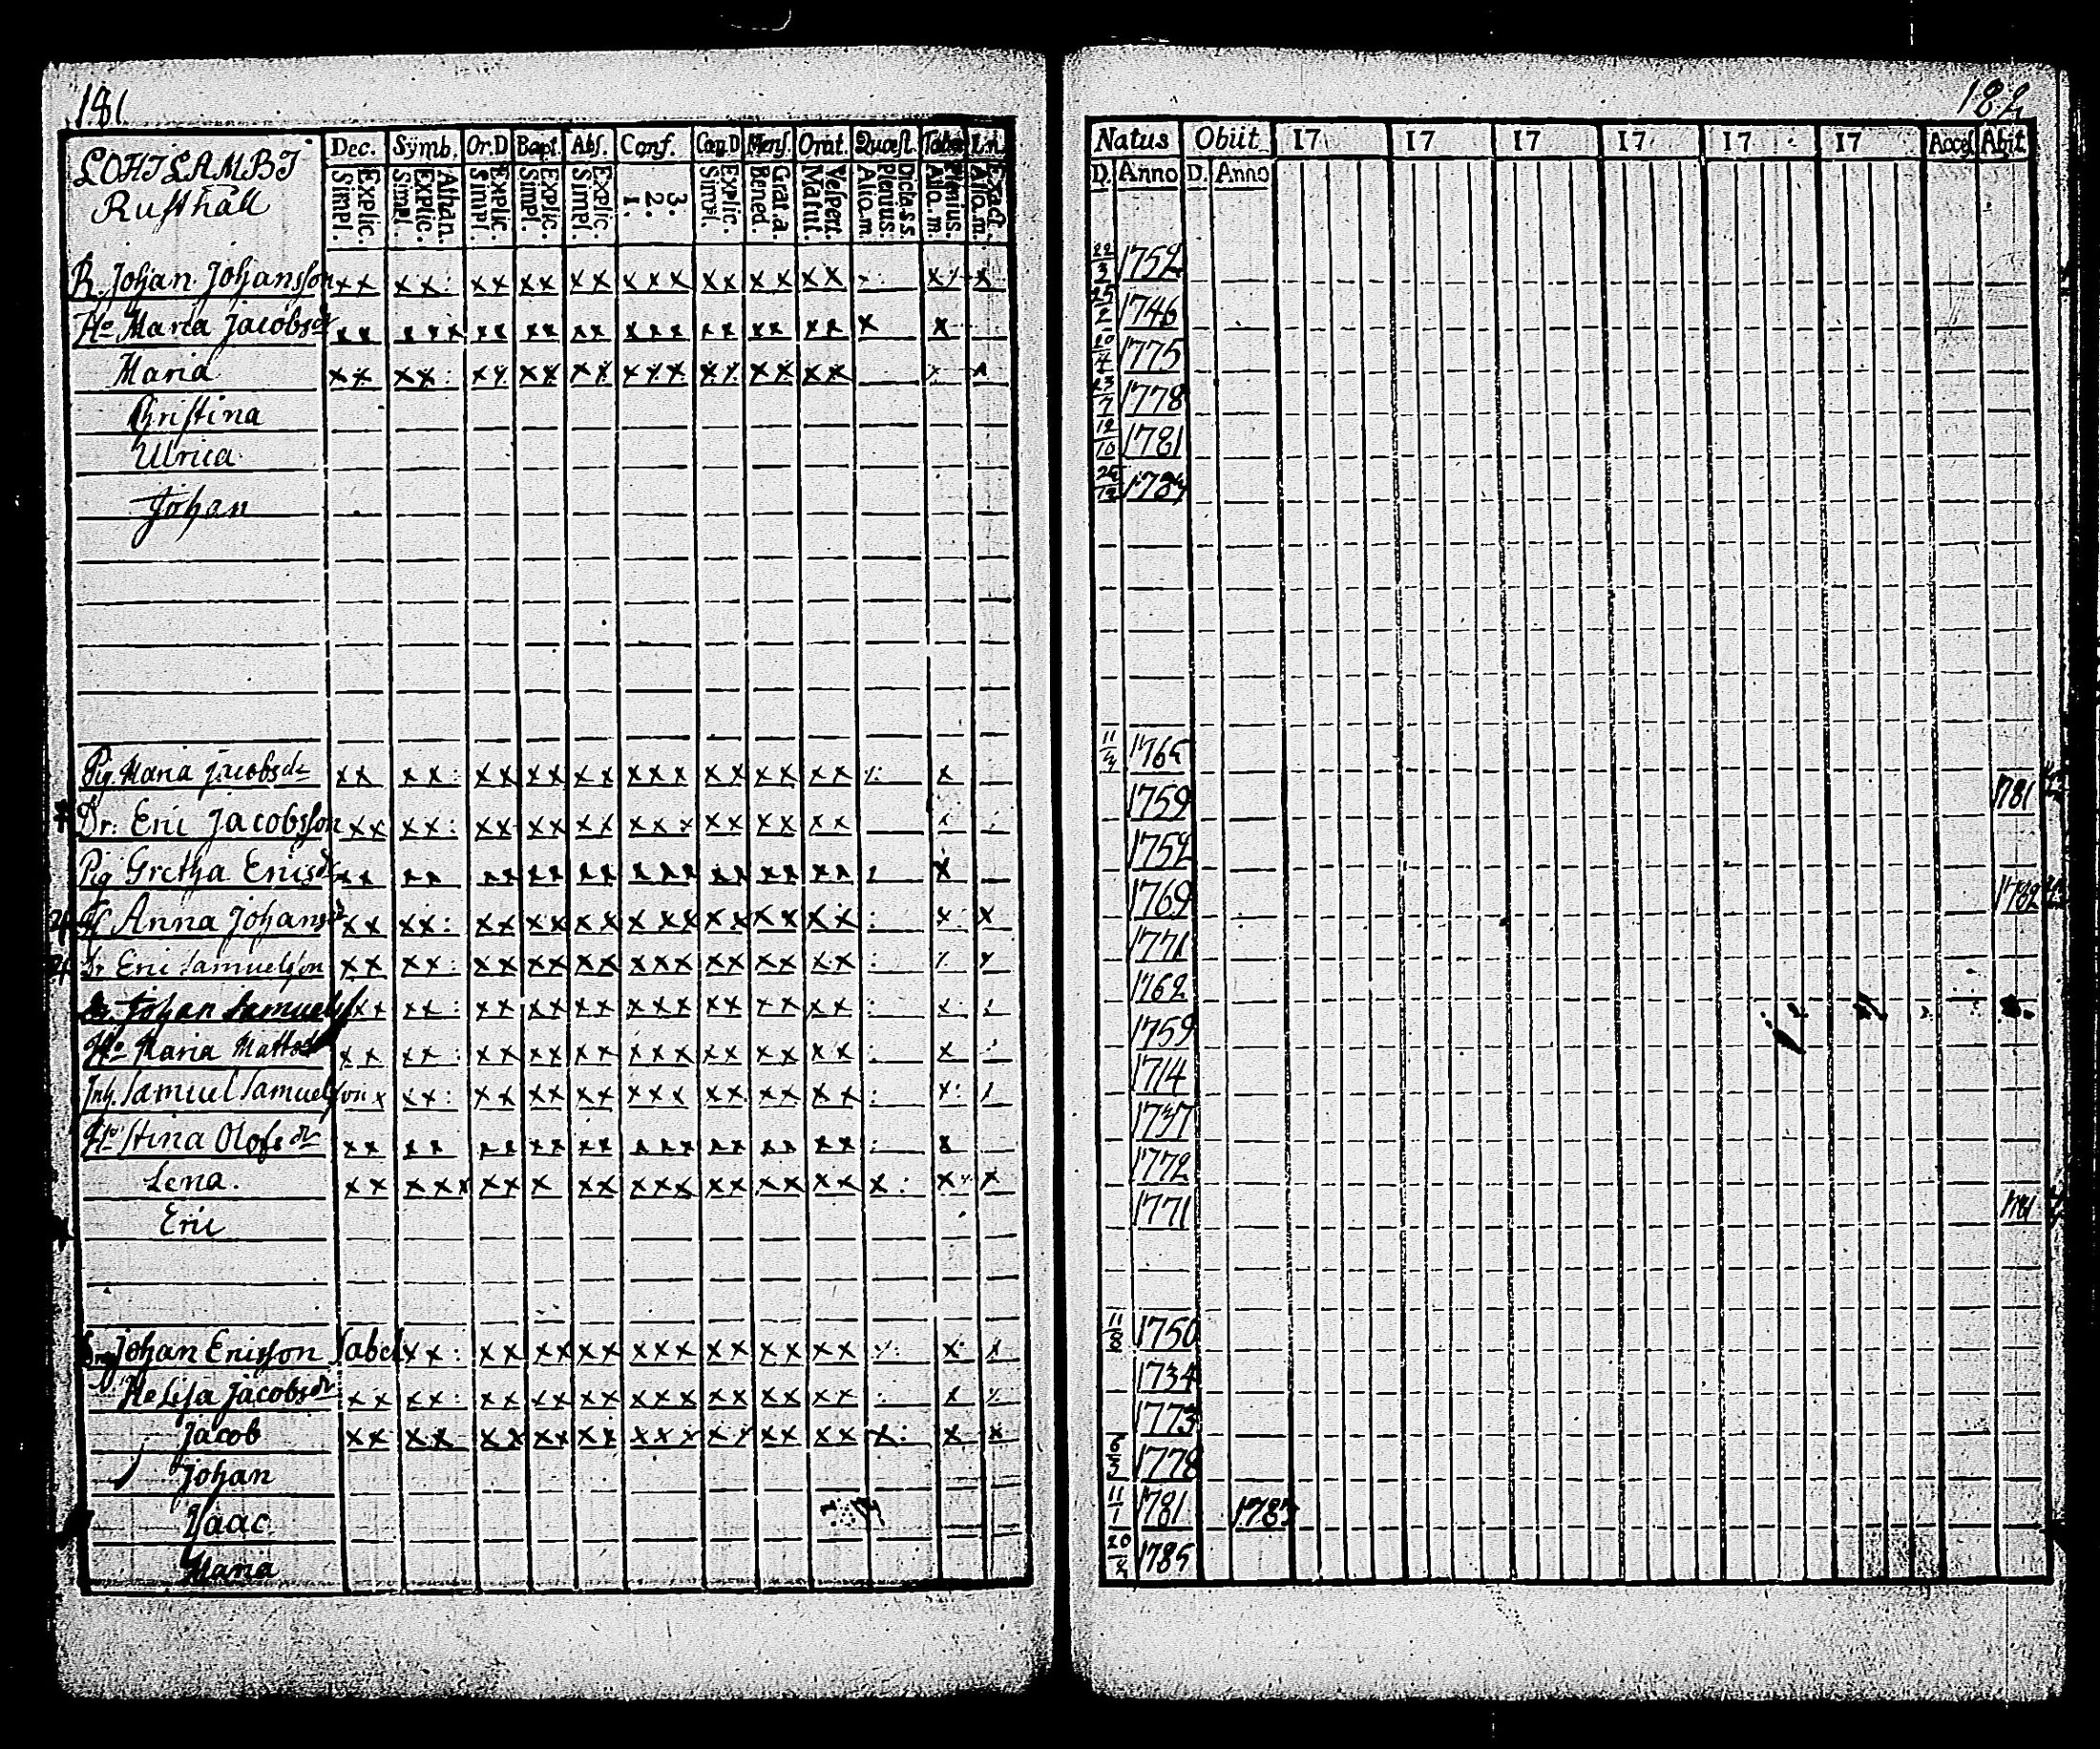 181
LOHILAMBI
Rusthåll
Dec. Symb. Or.D Bapt. Abs. Conf. Cœn.D Mens. Orat. Quæst. Tabæ
Explic. Simpl. Athan. Explic. Simpl. Explic. Simpl. Explic. Simpl. Explic. Simpl. 3. 2. 1. Explic. Simpl. Grat. a. Bened. Vespert. Matut. Dicta s.s. Plenius. Aliq. m. Plenius. Aliq. m. Exact. Aliq. m.
R. Johan Johansson xx xx: xx xx xx xxx xx xx xx
Ho Maria Jacobsdr xx xxx xx xx xx xxx xx xx xx x x
Maria xx xx: xx xx xx xxx xx xx xx
Christina
Ulrica
Johan
Pig. Maria Jacobsdr xx xx: xx xx xx xxx xx xx xx x
Dr: Eric Jacobsson xx xx: xx xx xx xxx xx xx xx
Pig Gretha Ericsdr xx xx xx xx xx xxx xx xx xx x
Anna Johansdr xx xx: xx xx xx xxx xx xx xx : x x
Dr Eric Samuelsson xx xx: xx xx xx xxx xx xx xx :
Dr Johan Samuelss xx xx: xx xx xx xxx xx xx xx :
Ho Maria Mattsdr xx xx: xx xx xx xxx xx xx xx : x
Inh. Samuel Samuelsson x xx: xx xx xx xxx xx xx xx :
Ho Stina Olofsdr xx xx xx xx xx xxx xx xx xx : x
Lena. xx xxx xx x xx xxx xx xx xx x: x x
Eric
Johan Ericsson Sabel xx: xx xx xx xxx xx xx xx
Ho Lisa Jacobsdr xx xx: xx xx xx xxx xx xx xx
Jacob xx xx xx xx xx xxx xx xx xx x: x x
Johan
Isaac
Maria
182
Natus Obiit 17 17 17 17 17 17 Access Abit
D. Anno D. Anno
22/3 1752
1746
20/4 1775
23/7 1778
12/10 1781
1784
1765
1759 1781
1752
1769 1782
1771
1762
1759
1714
1737
1772
1771 1781
11/8 1750
1734
1773
1778
11/1 1781
1785